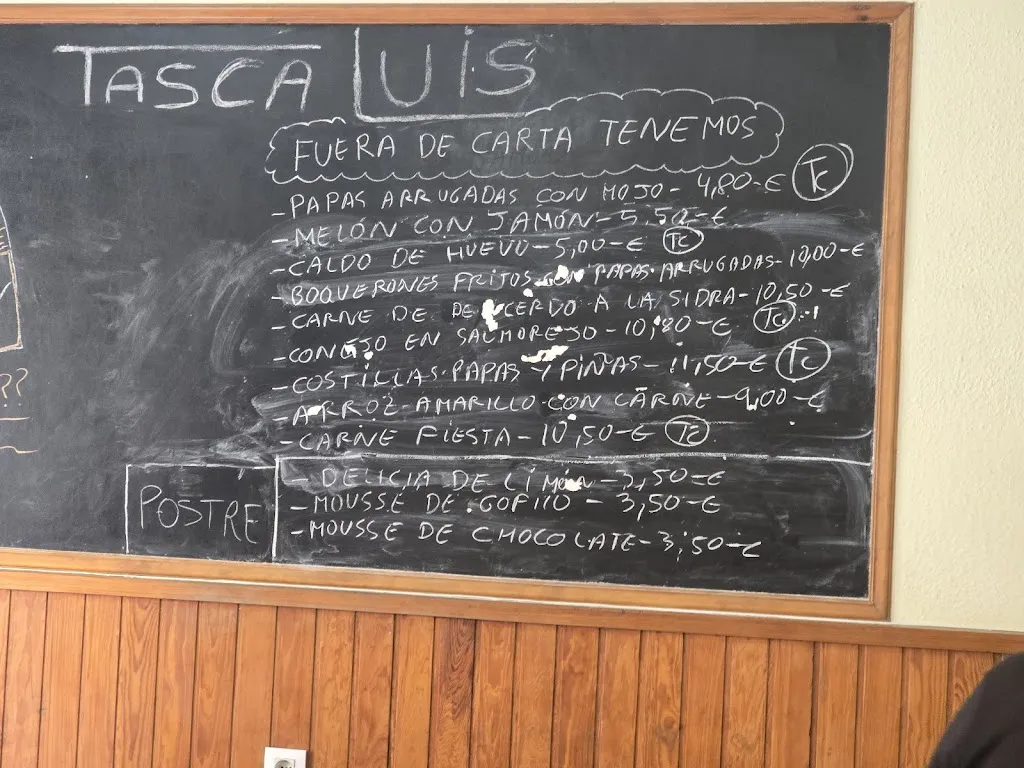 TASCA LUIS
FUERA DE CARTA TENEMOS
-PAPAS ARRUGADAS CON MOJO- 4,80-€ Tc
-MELÓN CON JAMÓN-5,50-€
-CALDO DE HUEVO-5,00-€ Tc
-BOQUERONES FRITOS CON PAPAS ARRUGADAS-10,00-€
-CARNE DE CERDO A LA SIDRA-10,50-€
-CONEJO EN SALMOREJO-10,80-€ Tc
-COSTILLAS-PAPAS Y PIÑAS-11,50-€ Tc
-ARROZ-AMARILLO-CON CARNE-9,00-€
-CARNE FIESTA-10,50-€ Tc
POSTRE
-DELICIA DE LIMÓN-3,50-€
-MOUSSE DE GOFIO-3,50-€
-MOUSSE DE CHOCOLATE-3,50-€
??